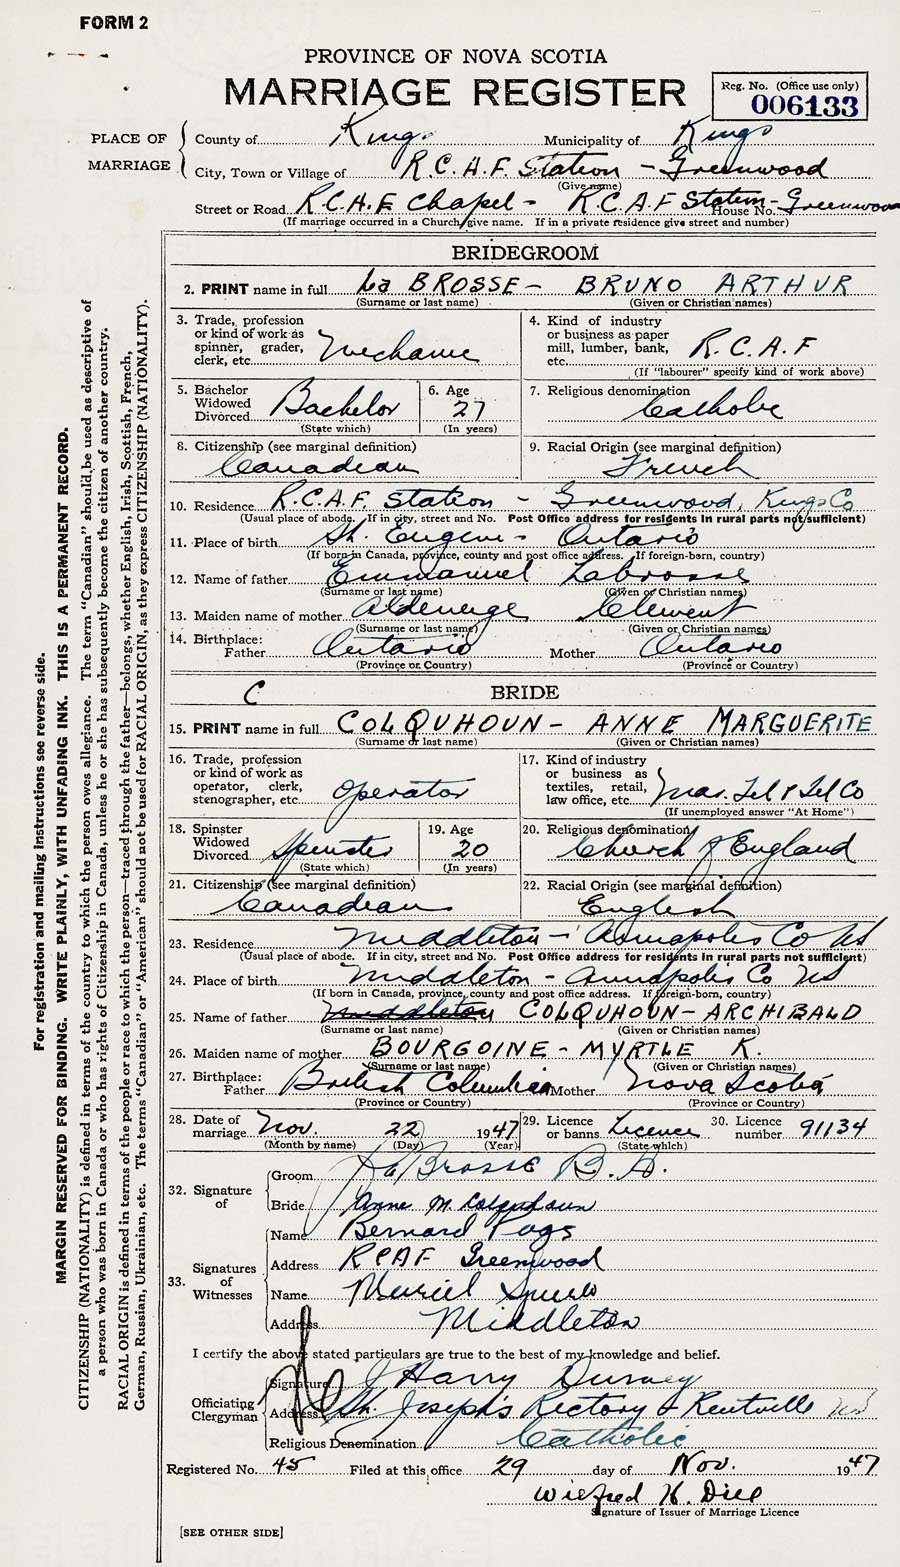 FORM 2
PROVINCE OF NOVA SCOTIA
MARRIAGE REGISTER
Reg. No. (Office use only)
006133
PLACE OF MARRIAGE
County of Kings Municipality of Kings
City, Town or Village of R.C.A.F. Station - Greenwood
(Give name)
Street or Road R.C.A.F Chapel - R.C.A.F Station - Greenwood House No.
(If marriage occurred in a Church, give name. If in a private residence give street and number)
BRIDEGROOM
2. PRINT name in full La BROSSE - BRUNO ARTHUR
(Surname or last name) (Given or Christian names)
3. Trade, profession or kind of work as spinner, grader, clerk, etc. Mechanic
4. Kind of industry or business as paper mill, lumber, bank, etc. R.C.A.F
(If "labourer" specify kind of work above)
5. Bachelor Widowed Divorced Bachelor
(State which)
6. Age 27
(In years)
7. Religious denomination Catholic
8. Citizenship (see marginal definition) Canadian
9. Racial Origin (see marginal definition) French
10. Residence R.C.A.F. Station - Greenwood, Kings Co
(Usual place of abode. If in city, street and No. Post Office address for residents in rural parts not sufficient)
11. Place of birth St. Eugene - Ontario
(If born in Canada, province, county and post office address. If foreign-born, country)
12. Name of father Emmanuel Labrosse
(Surname or last name) (Given or Christian names)
13. Maiden name of mother Clement
(Surname or last name) (Given or Christian names)
14. Birthplace: Father Ontario Mother Ontario
(Province or Country) (Province or Country)
C BRIDE
15. PRINT name in full COLQUHOUN - ANNE MARGUERITE
(Surname or last name) (Given or Christian names)
16. Trade, profession or kind of work as operator, clerk, stenographer, etc. Operator
17. Kind of industry or business as textiles, retail, law office, etc. Mar. Tel & Tel Co
(If unemployed answer "At Home")
18. Spinster Widowed Divorced Spinster
(State which)
19. Age 20
(In years)
20. Religious denomination Church of England
21. Citizenship (see marginal definition) Canadian
22. Racial Origin (see marginal definition) English
23. Residence Middleton - Annapolis Co NS
(Usual place of abode. If in city, street and No. Post Office address for residents in rural parts not sufficient)
24. Place of birth Middleton - Annapolis Co NS
(If born in Canada, province, county and post office address. If foreign-born, country)
25. Name of father Middleton COLQUHOUN - ARCHIBALD
(Surname or last name) (Given or Christian names)
26. Maiden name of mother BOURGOINE - MYRTLE K.
(Surname or last name) (Given or Christian names)
27. Birthplace: Father British Columbia Mother Nova Scotia
(Province or Country) (Province or Country)
28. Date of marriage Nov. 22 1947
(Month by name) (Day) (Year)
29. Licence or banns Licence
(State which)
30. Licence number 91134
32. Signature of
Groom La Brosse B. A.
Bride Anne M. Colquhoun
33. Signatures of Witnesses
Name Bernard
Address RCAF Greenwood
Name Muriel
Address Middleton
I certify the above stated particulars are true to the best of my knowledge and belief.
Officiating Clergyman
Signature J Harry Durney
Address St. Joseph's Rectory - Kentville NS
Religious Denomination Catholic
Registered No. 45 Filed at this office 29 day of Nov. 1947
Wilfred H. Dill
Signature of Issuer of Marriage Licence
[SEE OTHER SIDE]
For registration and mailing instructions see reverse side.
MARGIN RESERVED FOR BINDING. WRITE PLAINLY, WITH UNFADING INK. THIS IS A PERMANENT RECORD.
CITIZENSHIP (NATIONALITY) is defined in terms of the country to which the person owes allegiance. The term "Canadian" should be used as descriptive of
a person who was born in Canada or who has rights of Citizenship in Canada, unless he or she has subsequently become the citizen of another country.
RACIAL ORIGIN is defined in terms of the people or race to which the person—traced through the father—belongs, whether English, Irish, Scottish, French,
German, Russian, Ukrainian, etc. The terms "Canadian" or "American" should not be used for RACIAL ORIGIN, as they express CITIZENSHIP (NATIONALITY).